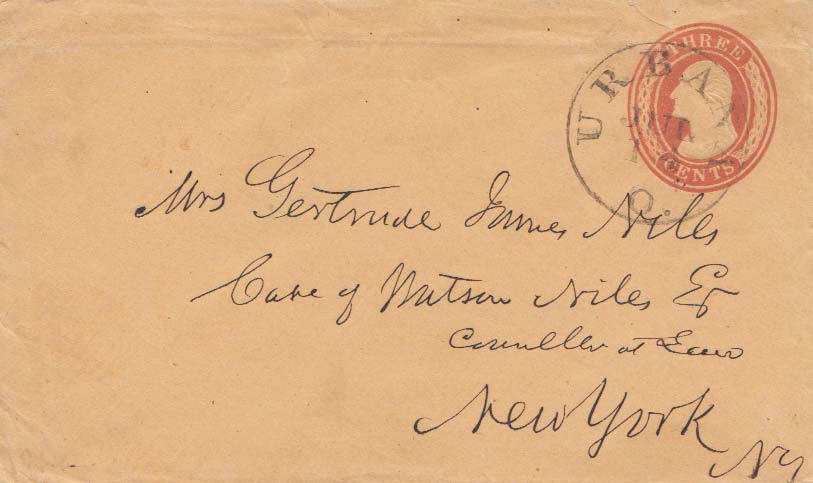 THREE
CENTS
URBANA
JUL
O.
Mrs Gertrude James Niles
Care of Watson Niles Esq
Counsellor at Law
New York
NY